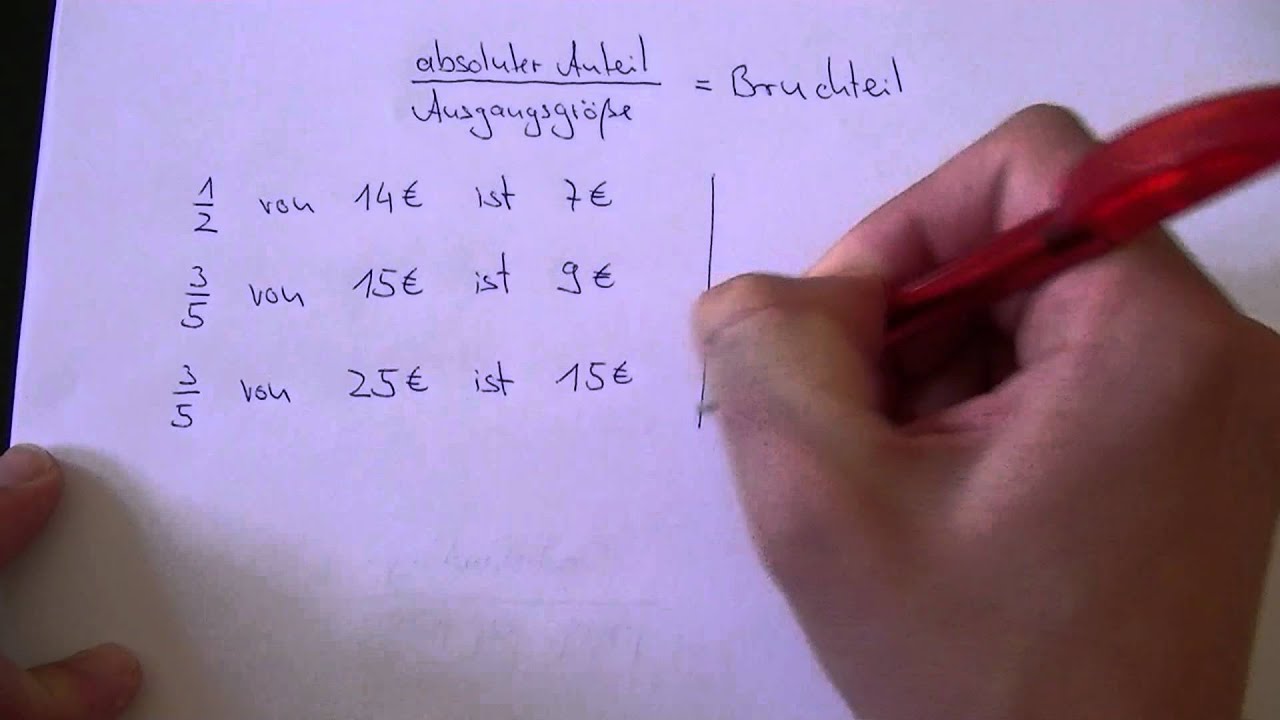 absoluter Anteil
Ausgangsgröße
= Bruchteil
1/2 von 14€ ist 7€
3/5 von 15€ ist 9€
3/5 von 25€ ist 15€